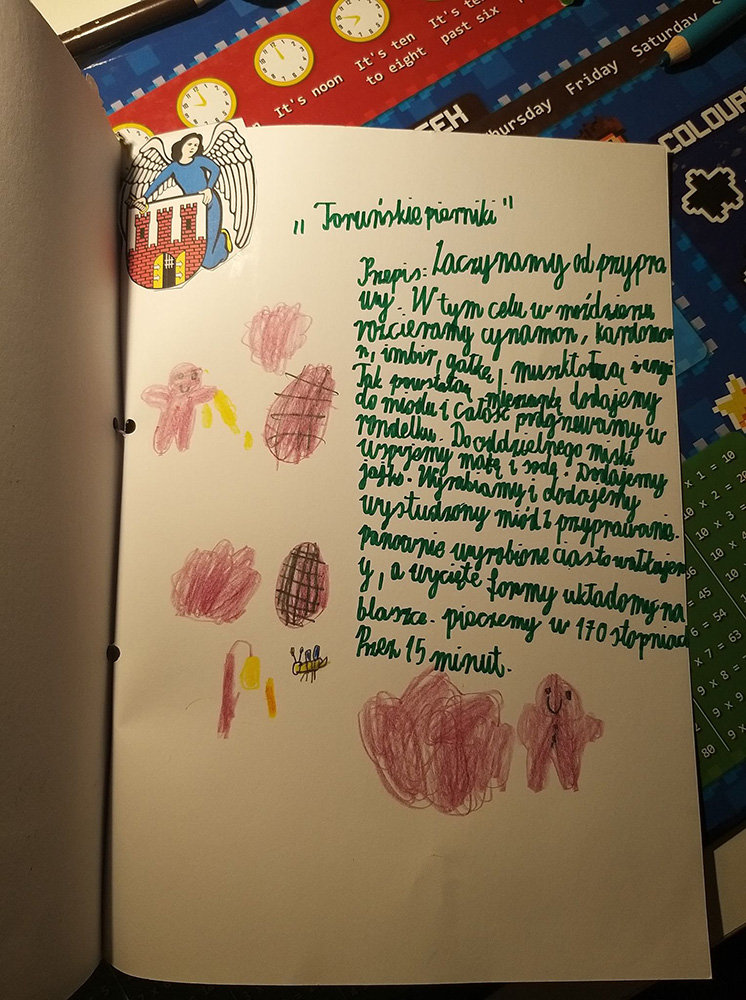 It's noon
It's ten
to eight
It's te
past six
Thursday
Friday
Saturday
S
EEH
COLOUR
„Toruńskie pierniki"
Przepis: Zaczynamy od przypra
wy. W tym celu w moździerzu
rozcieramy cynamon, kardomo
n, imbir, gałkę, musktołową i angi
Tak powstałą mieszankę dodajemy
do miodu i całość podgrzewamy w
rondelku. Do oddzielnego miski
wsypjemy mąkę i sodę. Dodajemy
jajko. Wyrabiamy i dodajemy
wystudzony miód z przyprawami.
ponownie wyrobione ciasto wałkujem
y, a wycięte formy układamy na
blaszce. pieczemy w 170 stopniach
Przez 15 minut.
x 1 = 10
10 x 2 = 20
10 x 3 =
10 x 4
= 45
10 x
6 = 54
10
x 7 = 63
9 x 8 =
9 x 9
80
9 x